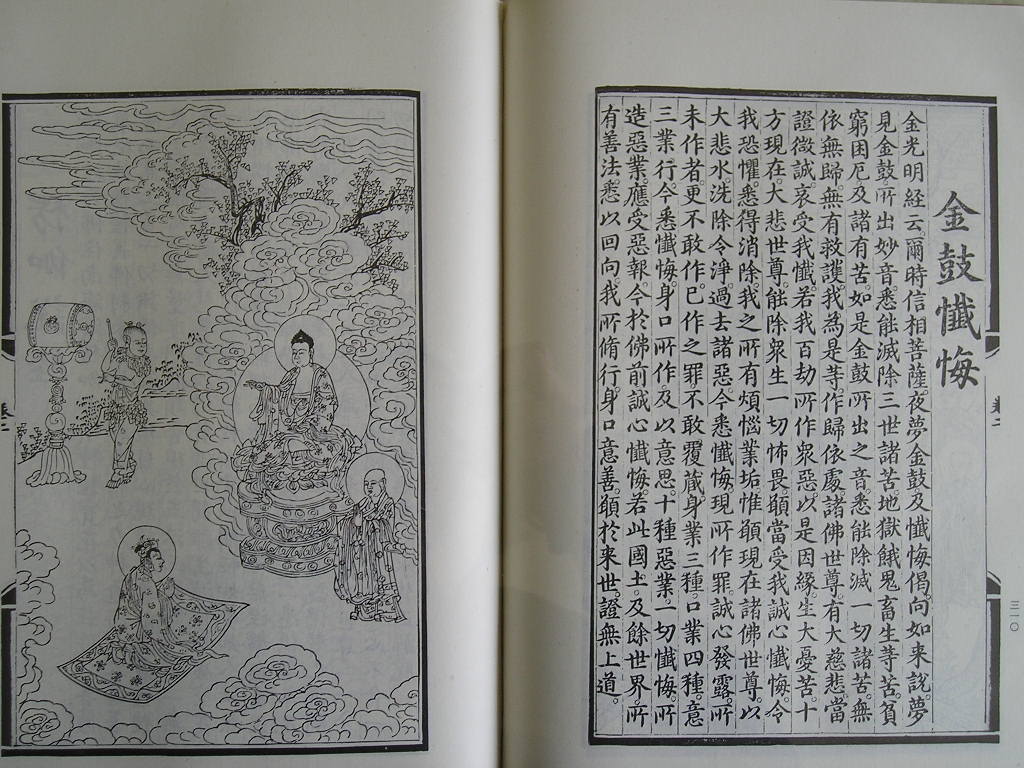 金鼓懺悔
金光明経云。爾時信相菩薩。夜夢金鼓及懺悔偈。向如来說夢
見金鼓所出妙音。悉能滅除三世諸苦。地獄餓鬼畜生等苦。貧
窮困厄及諸有苦。如是金鼓所出之音。悉能除滅一切諸苦。無
依無歸。無有救護。我為是等。作歸依處。諸佛世尊。有大慈悲。當
證微誠。哀受我懺。若我百劫所作衆惡。以是因緣。生大憂苦。十
方現在大悲世尊。能除衆生一切怖畏。願當受我誠心懺悔。令
我恐懼。悉得消除。我之所有煩惱業垢。惟願現在諸佛世尊。以
大悲水。洗除令淨。過去諸惡。今悉懺悔。現所作罪。誠心發露。所
未作者。更不敢作。已作之罪。不敢覆蔵。身業三種。口業四種。意
三業行。今悉懺悔。身口所作。及以意思。十種惡業。一切懺悔。所
造惡業。應受惡報。今於佛前。誠心懺悔。若此國土。及餘世界。所
有善法。悉以回向。我所脩行。身口意善。願於来世。證無上道。
卷二
三一〇